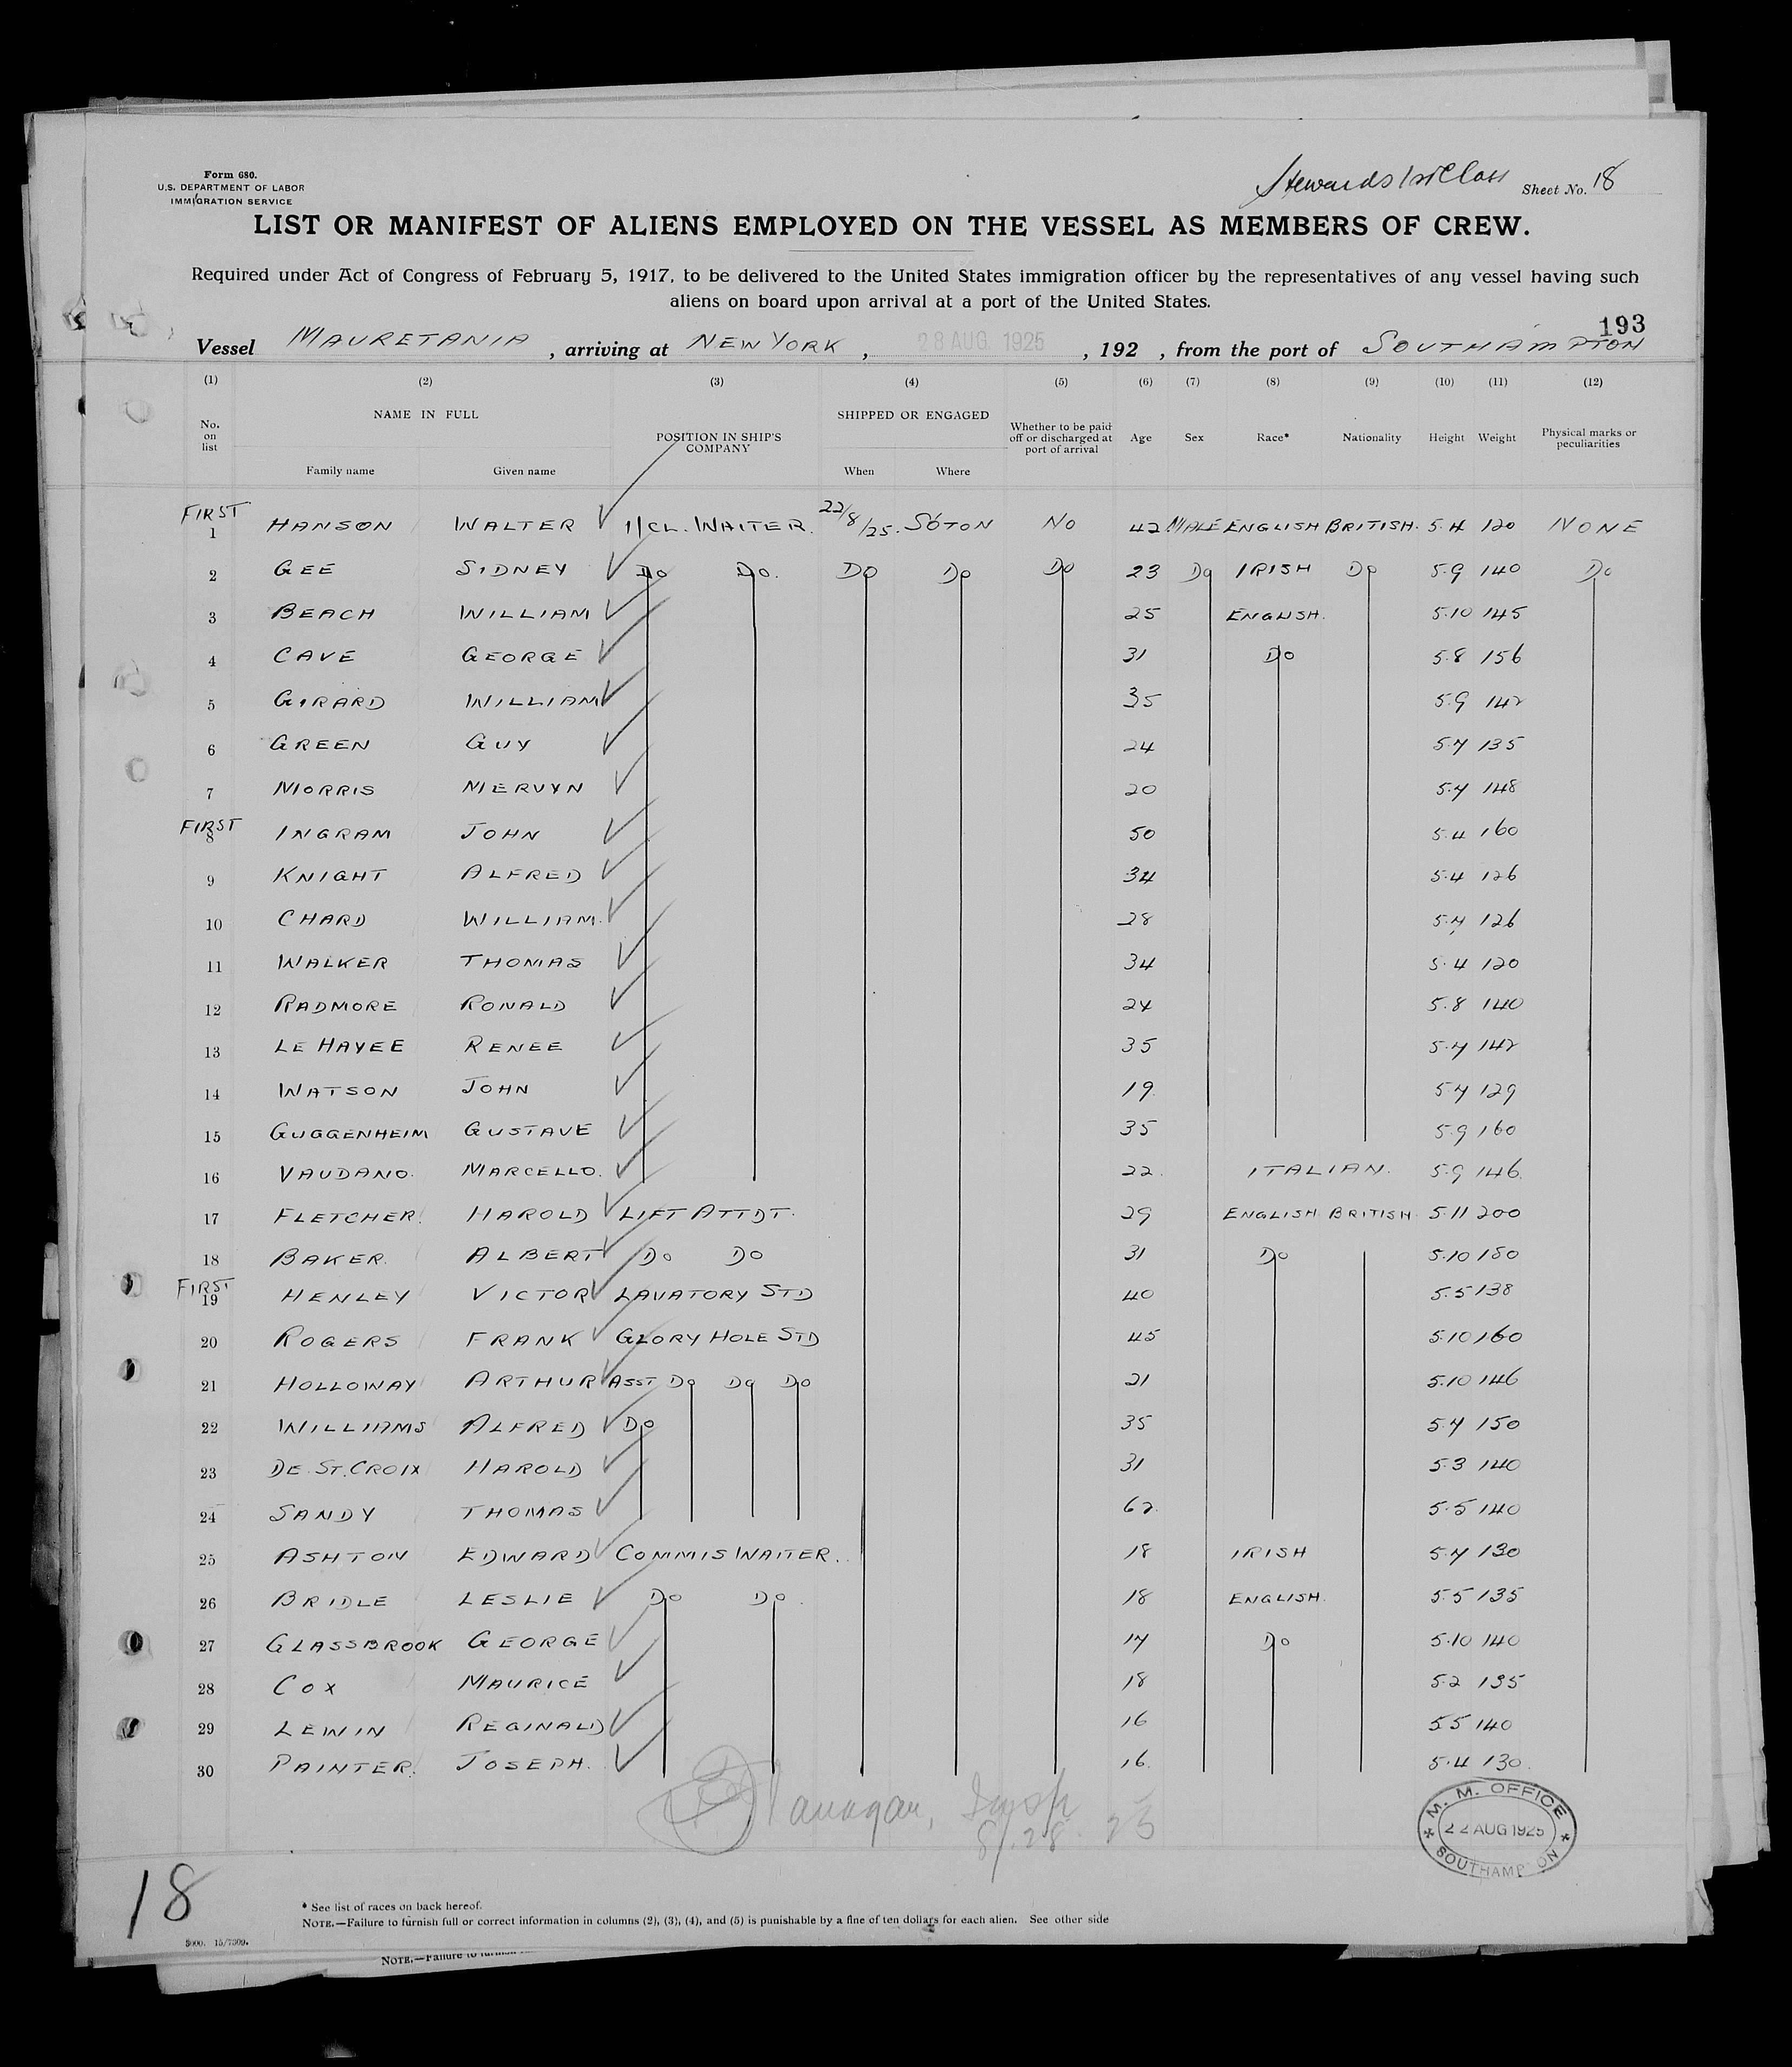 Form 680.
U.S. DEPARTMENT OF LABOR
IMMIGRATION SERVICE
Stewards 1st Class Sheet No. 18
LIST OR MANIFEST OF ALIENS EMPLOYED ON THE VESSEL AS MEMBERS OF CREW.
Required under Act of Congress of February 5, 1917, to be delivered to the United States immigration officer by the representatives of any vessel having such
aliens on board upon arrival at a port of the United States.
193
Vessel MAURETANIA, arriving at NEW YORK, 28 AUG. 1925, 192 , from the port of SOUTHAMPTON
(1) (2) (3) (4) (5) (6) (7) (8) (9) (10) (11) (12)
No. on list NAME IN FULL Family name Given name POSITION IN SHIP'S COMPANY SHIPPED OR ENGAGED When Where Whether to be paid off or discharged at port of arrival Age Sex Race* Nationality Height Weight Physical marks or peculiarities
FIRST
1 HANSON WALTER 1/CL. WAITER. 22/8/25. S'OTON NO 42 MALE ENGLISH BRITISH. 5.4 120 NONE
2 GEE SIDNEY DO DO. DO DO DO 23 DO IRISH DO 5.9 140 DO
3 BEACH WILLIAM 25 ENGLISH. 5.10 145
4 CAVE GEORGE 31 DO 5.8 156
5 GIRARD WILLIAM 35 5.9 142
6 GREEN GUY 24 5.7 135
7 MORRIS MERVYN 20 5.7 148
FIRST
8 INGRAM JOHN 50 5.4 160
9 KNIGHT ALFRED 34 5.4 126
10 CHARD WILLIAM. 28 5.7 126
11 WALKER THOMAS 34 5.4 120
12 RADMORE RONALD 24 5.8 140
13 LE HAYEE RENEE 35 5.7 142
14 WATSON JOHN 19. 5.7 129
15 GUGGENHEIM GUSTAVE 35 5.9 160
16 VAUDANO. MARCELLO. 22. ITALIAN. 5.9 146.
17 FLETCHER. HAROLD LIFT ATTDT. 29 ENGLISH BRITISH 5.11 200
18 BAKER. ALBERT DO DO 31 DO 5.10 180
FIRST
19 HENLEY VICTOR LAVATORY STD 40 5.5 138
20 ROGERS FRANK GLORY HOLE STD 45 5.10 160
21 HOLLOWAY ARTHUR ASST DO DO DO 21 5.10 146
22 WILLIAMS ALFRED DO 35 5.7 150
23 DE ST. CROIX HAROLD 31 5.3 140
24 SANDY THOMAS 62. 5.5 140
25 ASHTON EDWARD COMMIS WAITER. 18 IRISH 5.7 130
26 BRIDLE LESLIE DO DO. 18 ENGLISH. 5.5 135
27 GLASSBROOK GEORGE 17 DO 5.10 140
28 COX MAURICE 18 5.2 135
29 LEWIN REGINALD 16 5.5 140
30 PAINTER. JOSEPH. 16. 5.4 130.
Flanagan, Insp
8/28.25
M. M. OFFICE
22 AUG 1925
SOUTHAMPTON
18
* See list of races on back hereof.
NOTE.—Failure to furnish full or correct information in columns (2), (3), (4), and (5) is punishable by a fine of ten dollars for each alien. See other side
NOTE.—Failure to